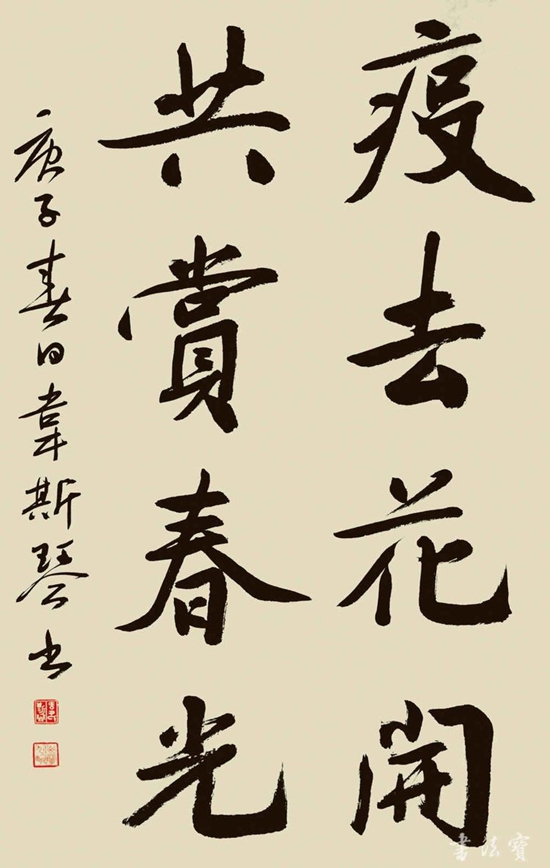 疫去花開
共賞春光
庚子春日韋斯琴书
書法寶